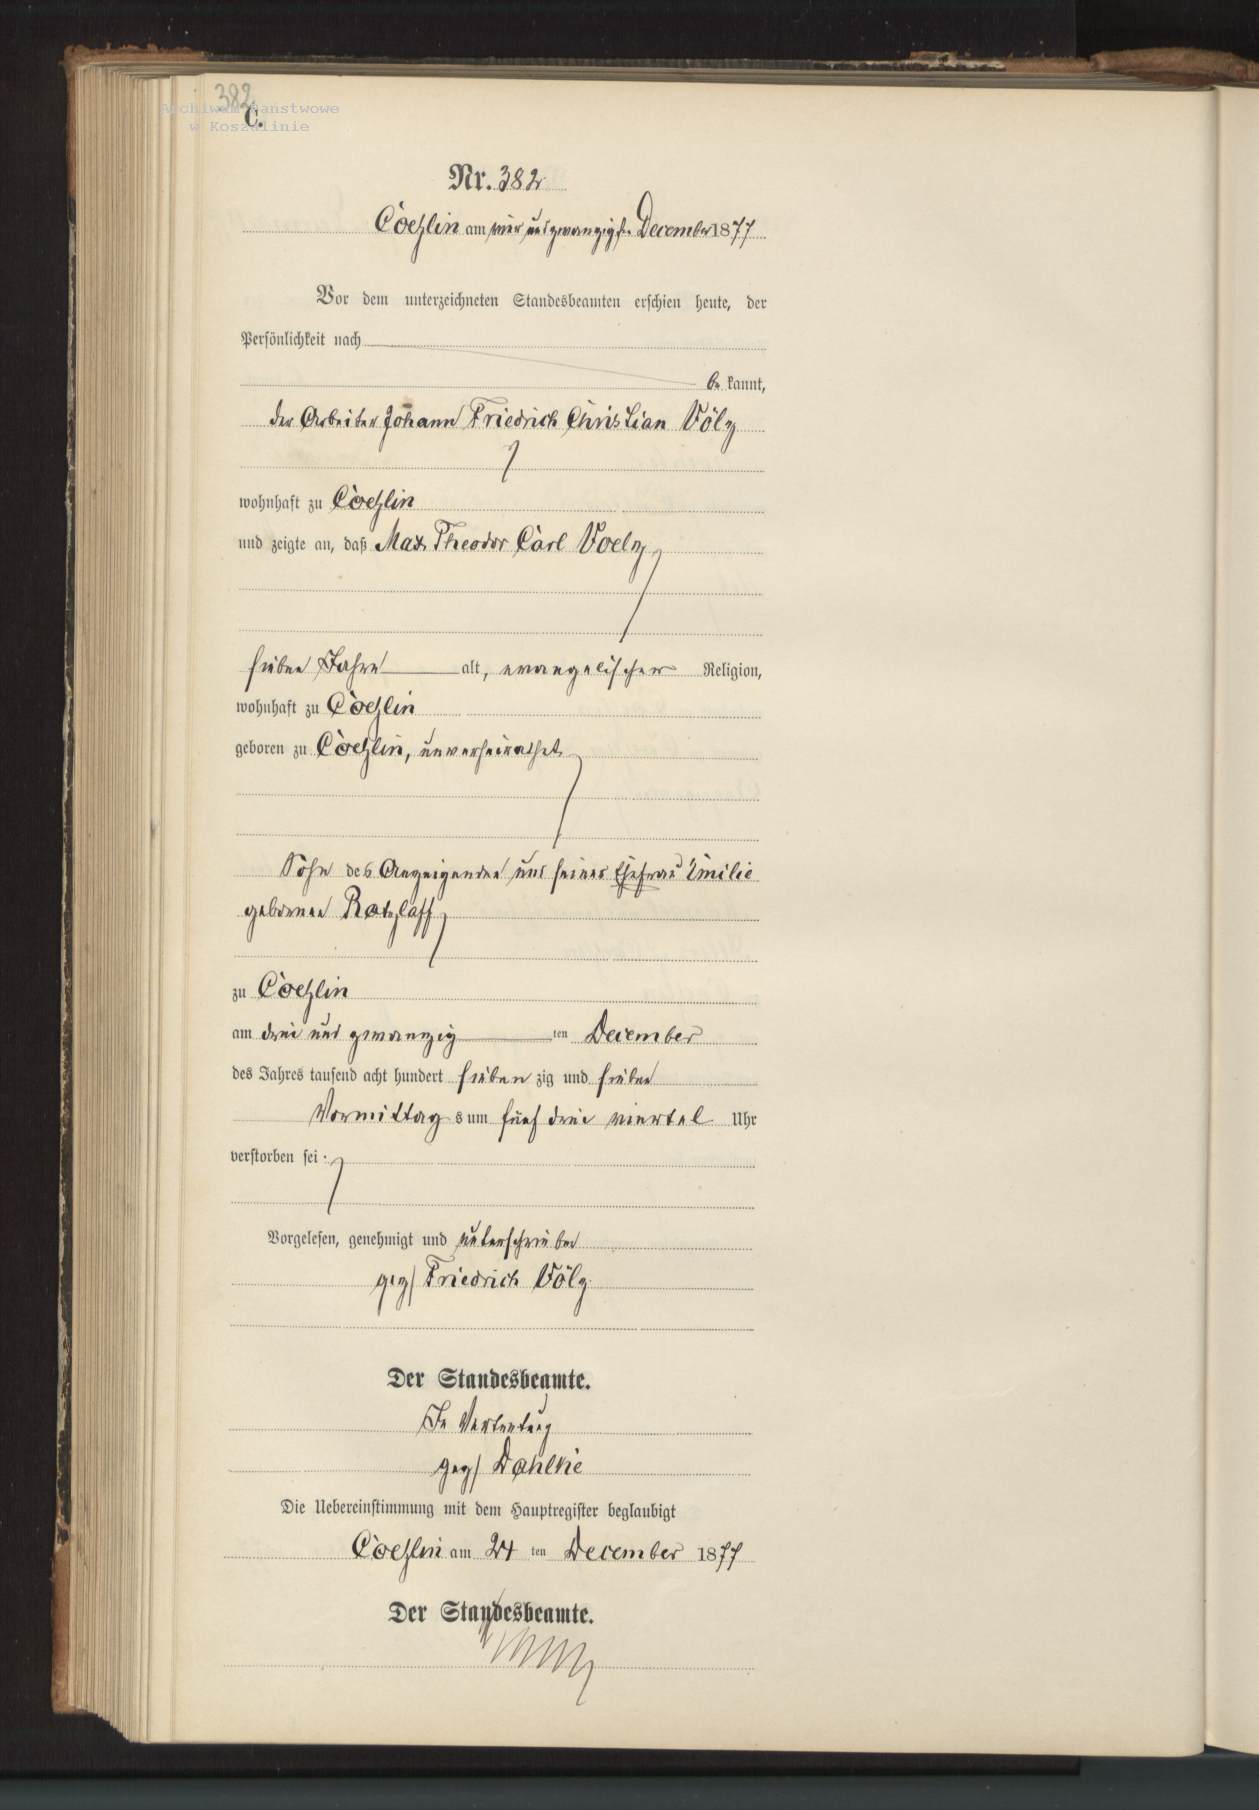 382
Archiwum Państwowe
w Koszalinie
C.
Nr. 382
Coeslin am vier und zwanzigsten December 1877
Vor dem unterzeichneten Standesbeamten erschien heute, der
Persönlichkeit nach
be kannt,
der Arbeiter Johann Friedrich Christian Völz
wohnhaft zu Coeslin
und zeigte an, daß Max Theodor Carl Voelz
sieben Jahre alt, evangelischer Religion,
wohnhaft zu Coeslin
geboren zu Coeslin, unverheirathet
Sohn des Anzeigenden und seiner Ehefrau Emilie
geborenen Ratzlaff
zu Coeslin
am drei und zwanzig ten December
des Jahres tausend acht hundert sieben zig und sieben
Vormittag s um fünf drei viertel Uhr
verstorben sei.
Vorgelesen, genehmigt und unterschrieben
gez/ Friedrich Völz.
Der Standesbeamte.
In Vertretung
gez/ Dahlke
Die Uebereinstimmung mit dem Hauptregister beglaubigt
Coeslin am 24 ten December 1877
Der Standesbeamte.